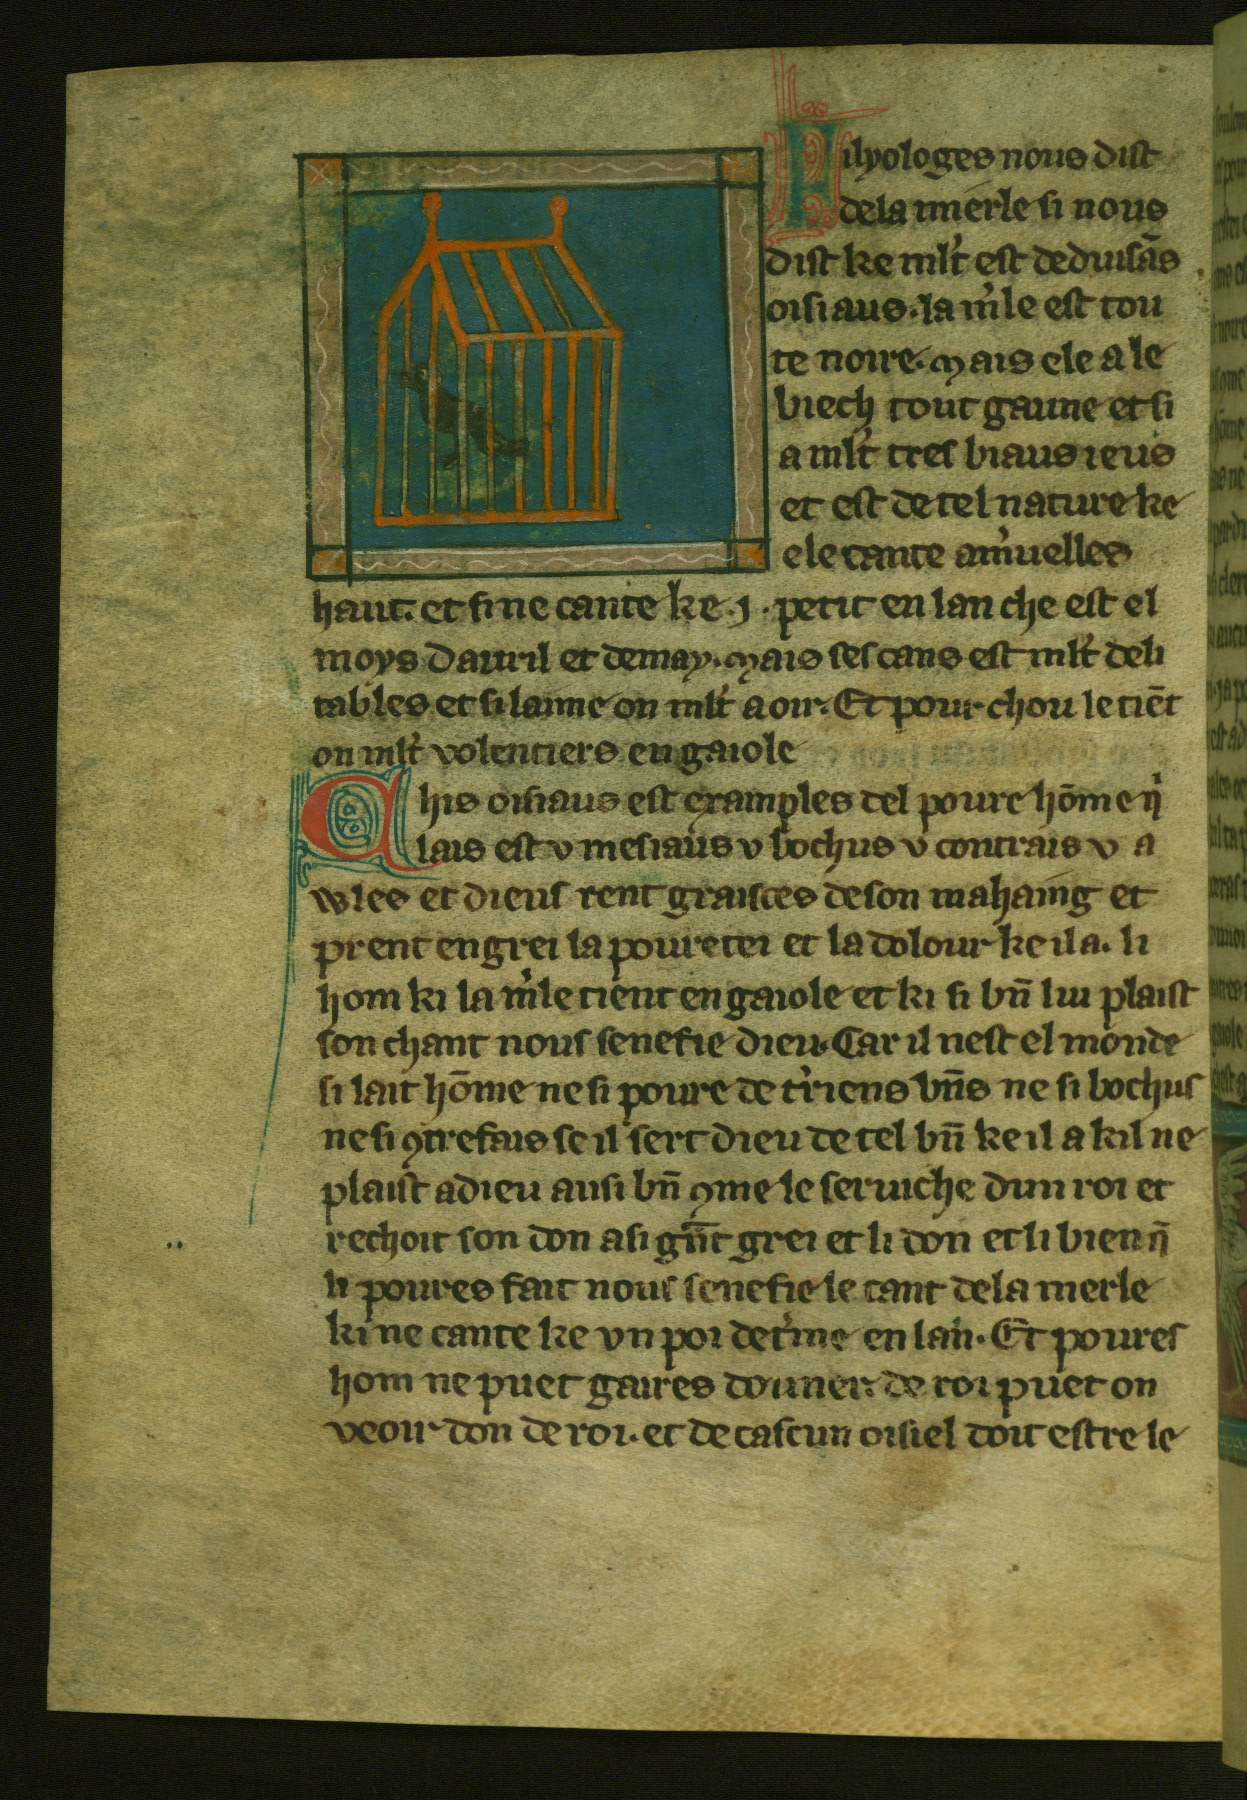 Filyologes nous dist
de la merle si nous
dist ke ml't est deduisās
oisiaus. la m'le est tou
te noire. Mais ele a le
biech tout gaune et si
a ml't tres biaus ieus
et est de tel nature ke
ele cante a m'uelles
haut. et si ne cante ke .j. petit en lan che est el
moys dauril et de may. Mais ses cans est ml't deli
tables et si laime on ml't a oir. Et pour chou le tiēt
on ml't volentiers en gaiole
Chis oisiaus est examples del poure hōme q'
lais est v mesiaus v bochus v contrais v a
wles et dieus rent graisces de son mahaing et
prent en grei la pouretei et la dolour ke il a. li
hom ki la m'le tient en gaiole et ki si bn̄ lui plaist
son chant nous senefie dieu. Car il nest el monde
si lait hōme ne si poure de t'riens bn̄s ne si bochus
ne si ꝯtrefais se il sert dieu de tel bn̄ ke il a kil ne
plaist a dieu ausi bn̄ ꝯme le seruiche dun roi et
rechoit son don a si gn̄t grei et li don et li bien q̄
li poures fait nous senefie le cant de la merle
ki ne cante ke vn poi de t'me en lan. Et poures
hom ne puet gaires douner. de roi puet on
veoir don de roi. et de cascun oisiel doit estre le